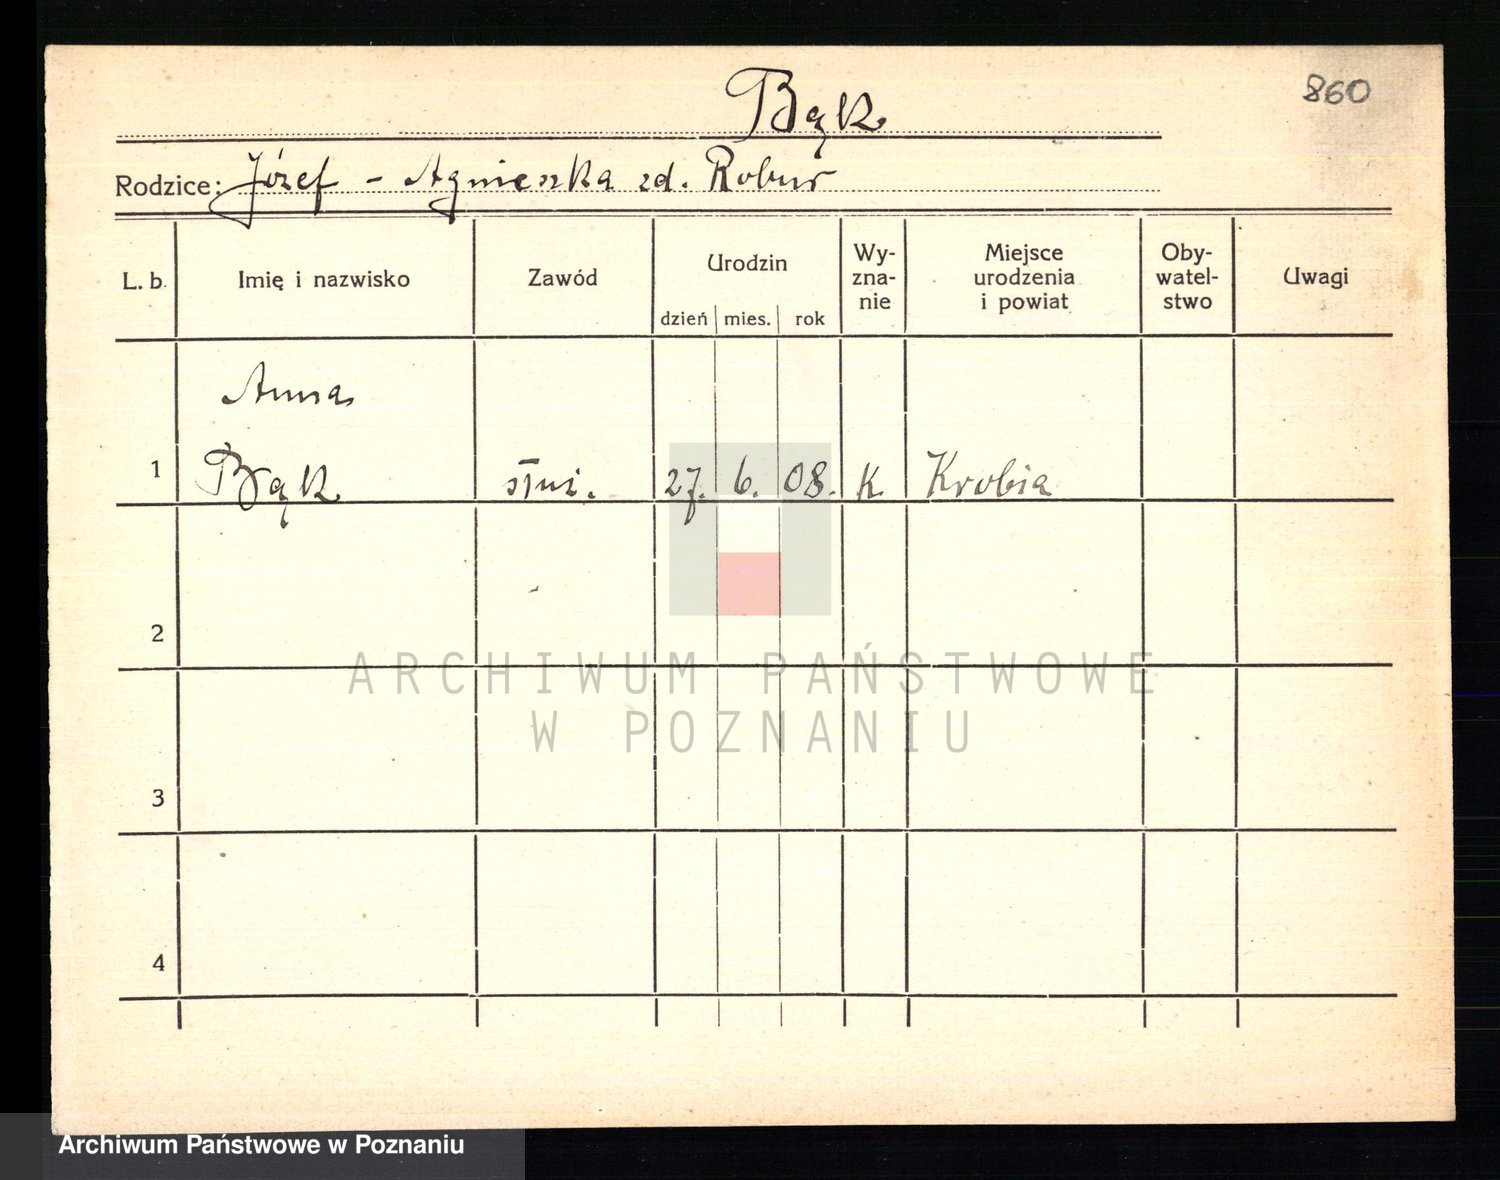 860
Bąk
Rodzice: Józef - Agnieszka zd. Robur
L. b. Imię i nazwisko Zawód Urodzin Wy-zna-nie Miejsce urodzenia i powiat Oby-watel-stwo Uwagi
dzień mies. rok
Anna
1 Bąk służ. 27. 6. 08. k. Krobia
2
3
4
ARCHIWUM PAŃSTWOWE
W POZNANIU
Archiwum Państwowe w Poznaniu